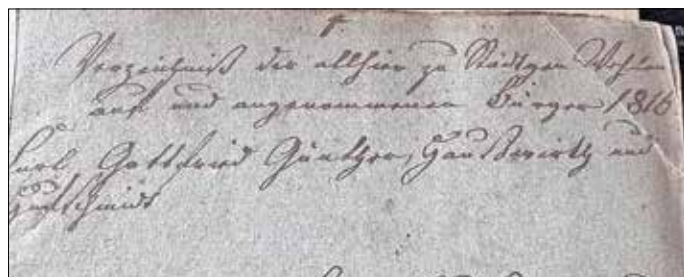 Verzeichniß der allhier zu Städtgen Wehlen
auf und angenommenen Bürger 1816
Carl Gottfried Günther, Haußwirth und
Hufschmidt